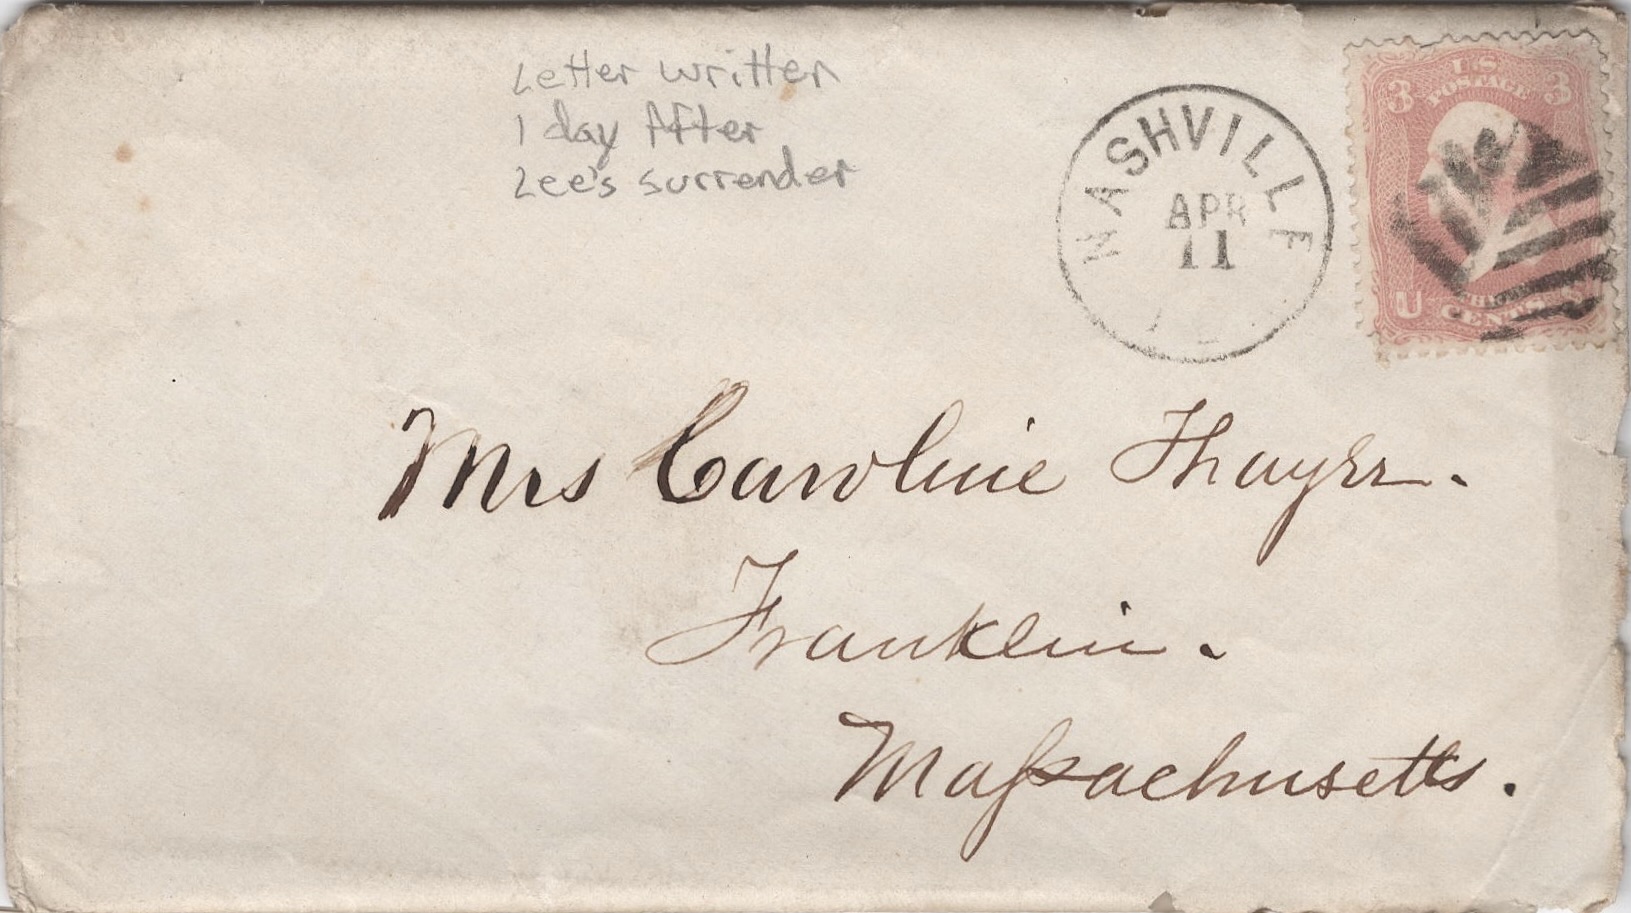 Letter written
1 day After
Lee's surrender
NASHVILLE
APR
11
U.S.
POSTAGE
3 3
U S
THREE
CENTS
Mrs Caroline Thayer.
Franklin.
Massachusetts.